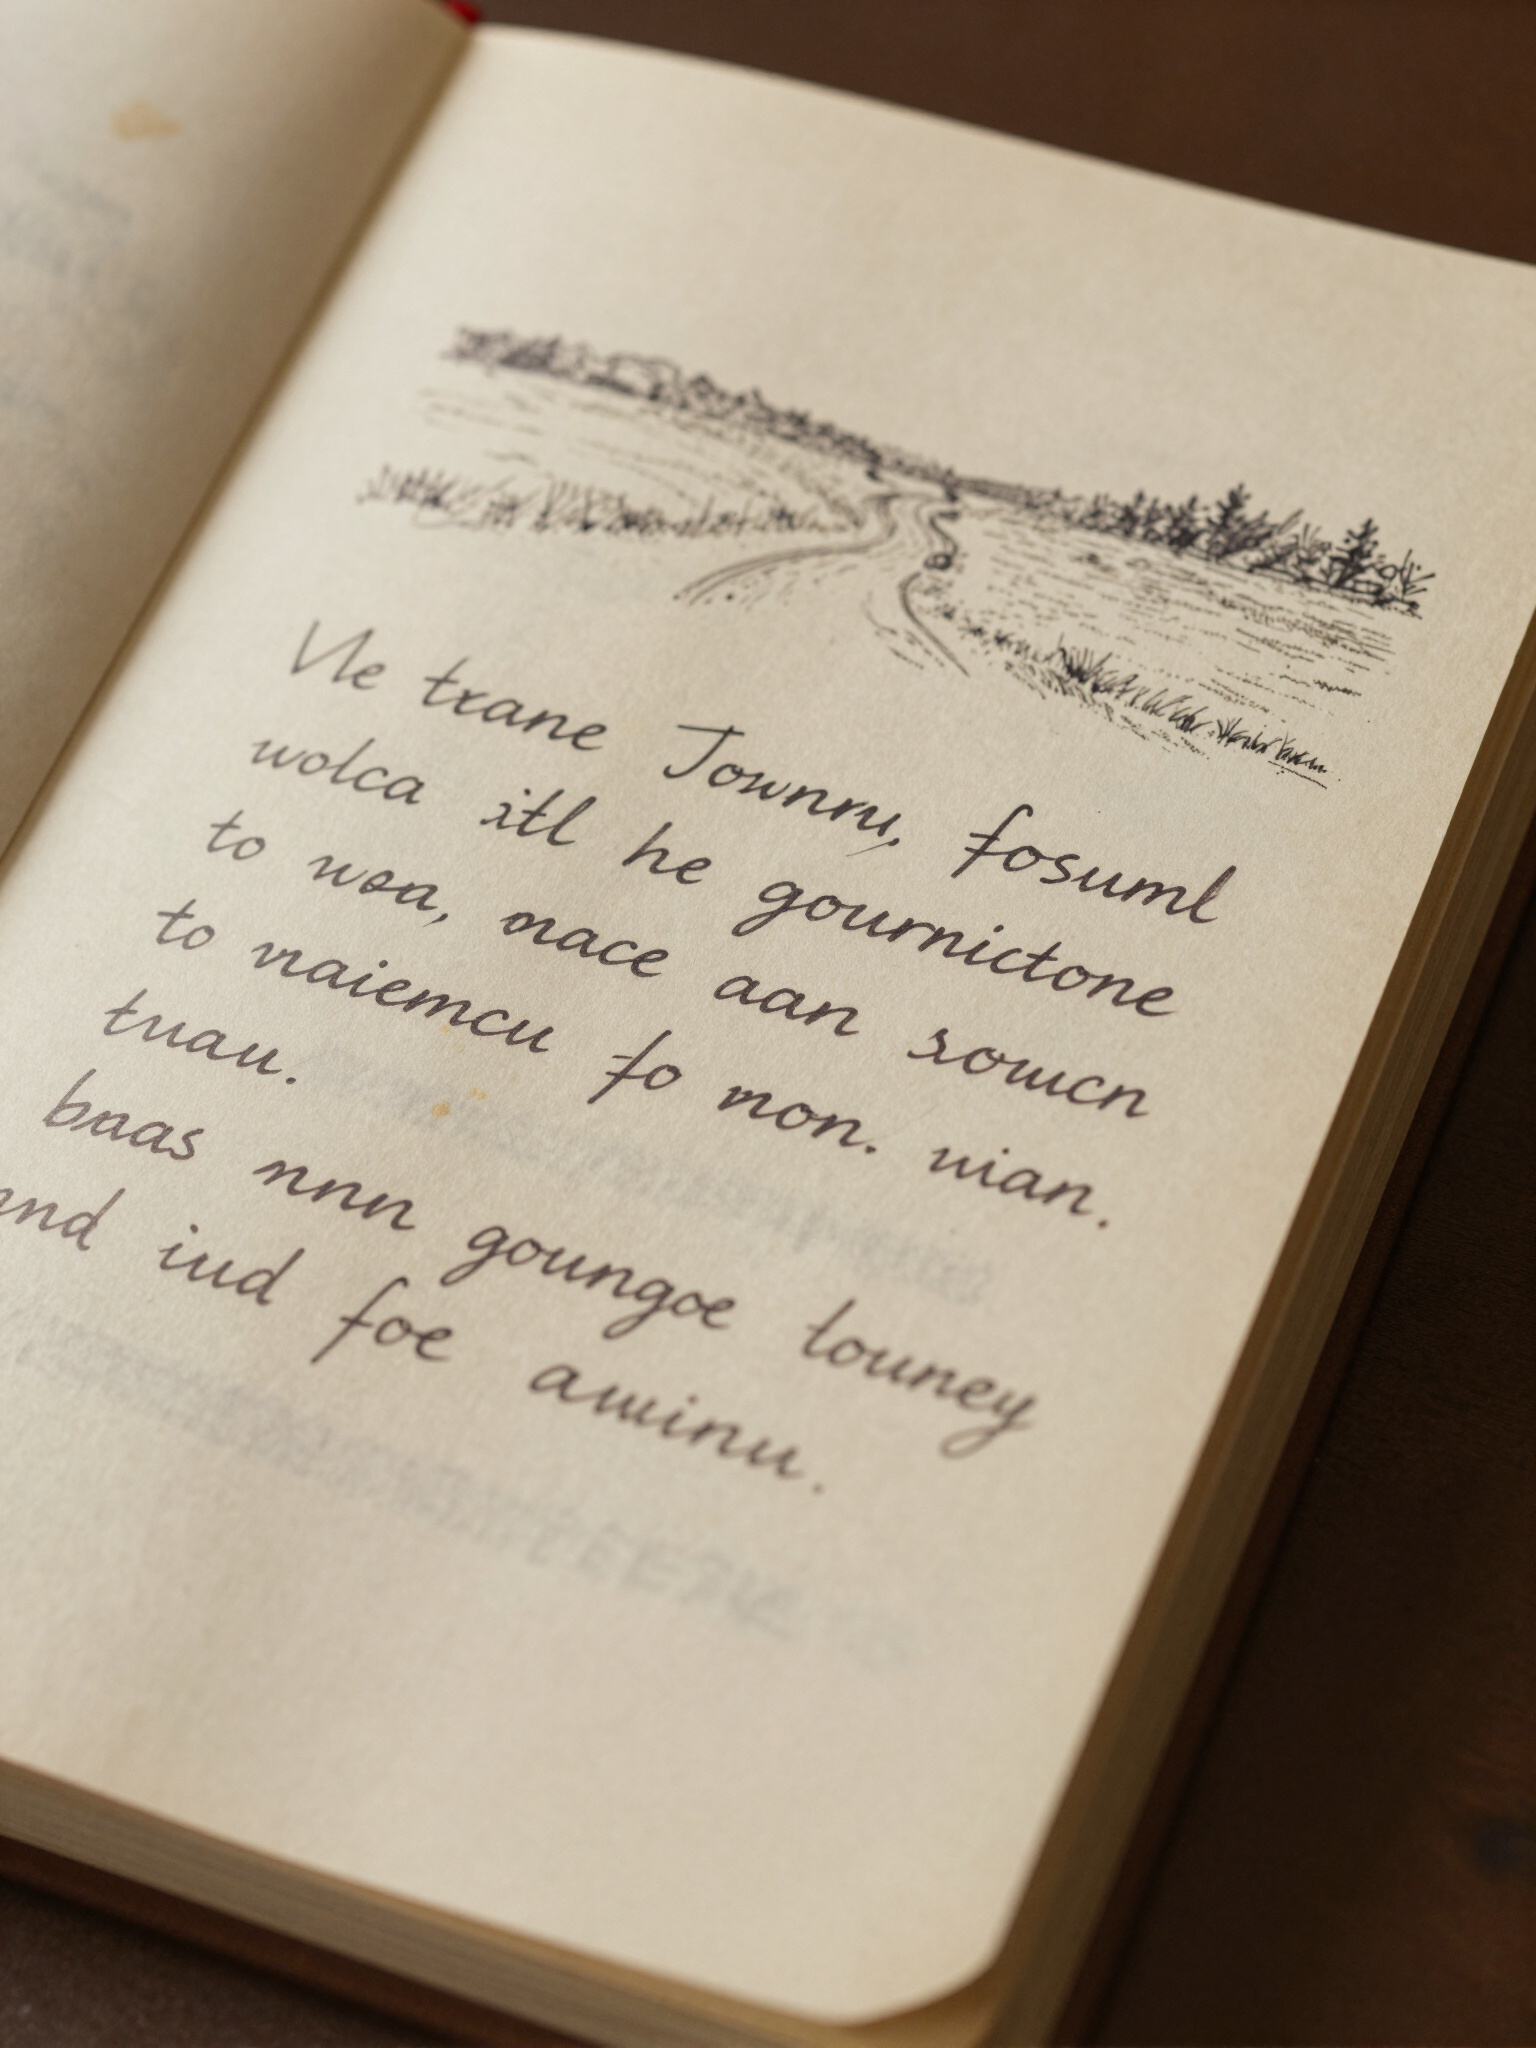 Vle txane Townru, fosuml
wolca itl he gournictone
to woa, nace aan sowcn
to vraiemcu fo non. uian.
tuau.
baas nnn goungoe touney
and iud foe awinu.